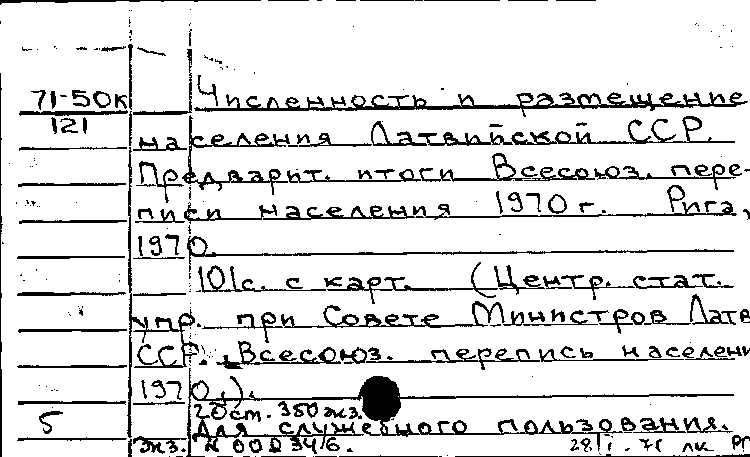 71-50к Численность и размещение
121
населения Латвийской ССР.
Предварит. итоги Всесоюз. пере-
писи населения 1970 г. Рига,
1970.
101с. с карт. (Центр. стат.
упр. при Совете Министров Латв
ССР. Всесоюз. перепись населени
1970.).
20см. 350 экз.
5 Для служебного пользования.
Экз. N 00